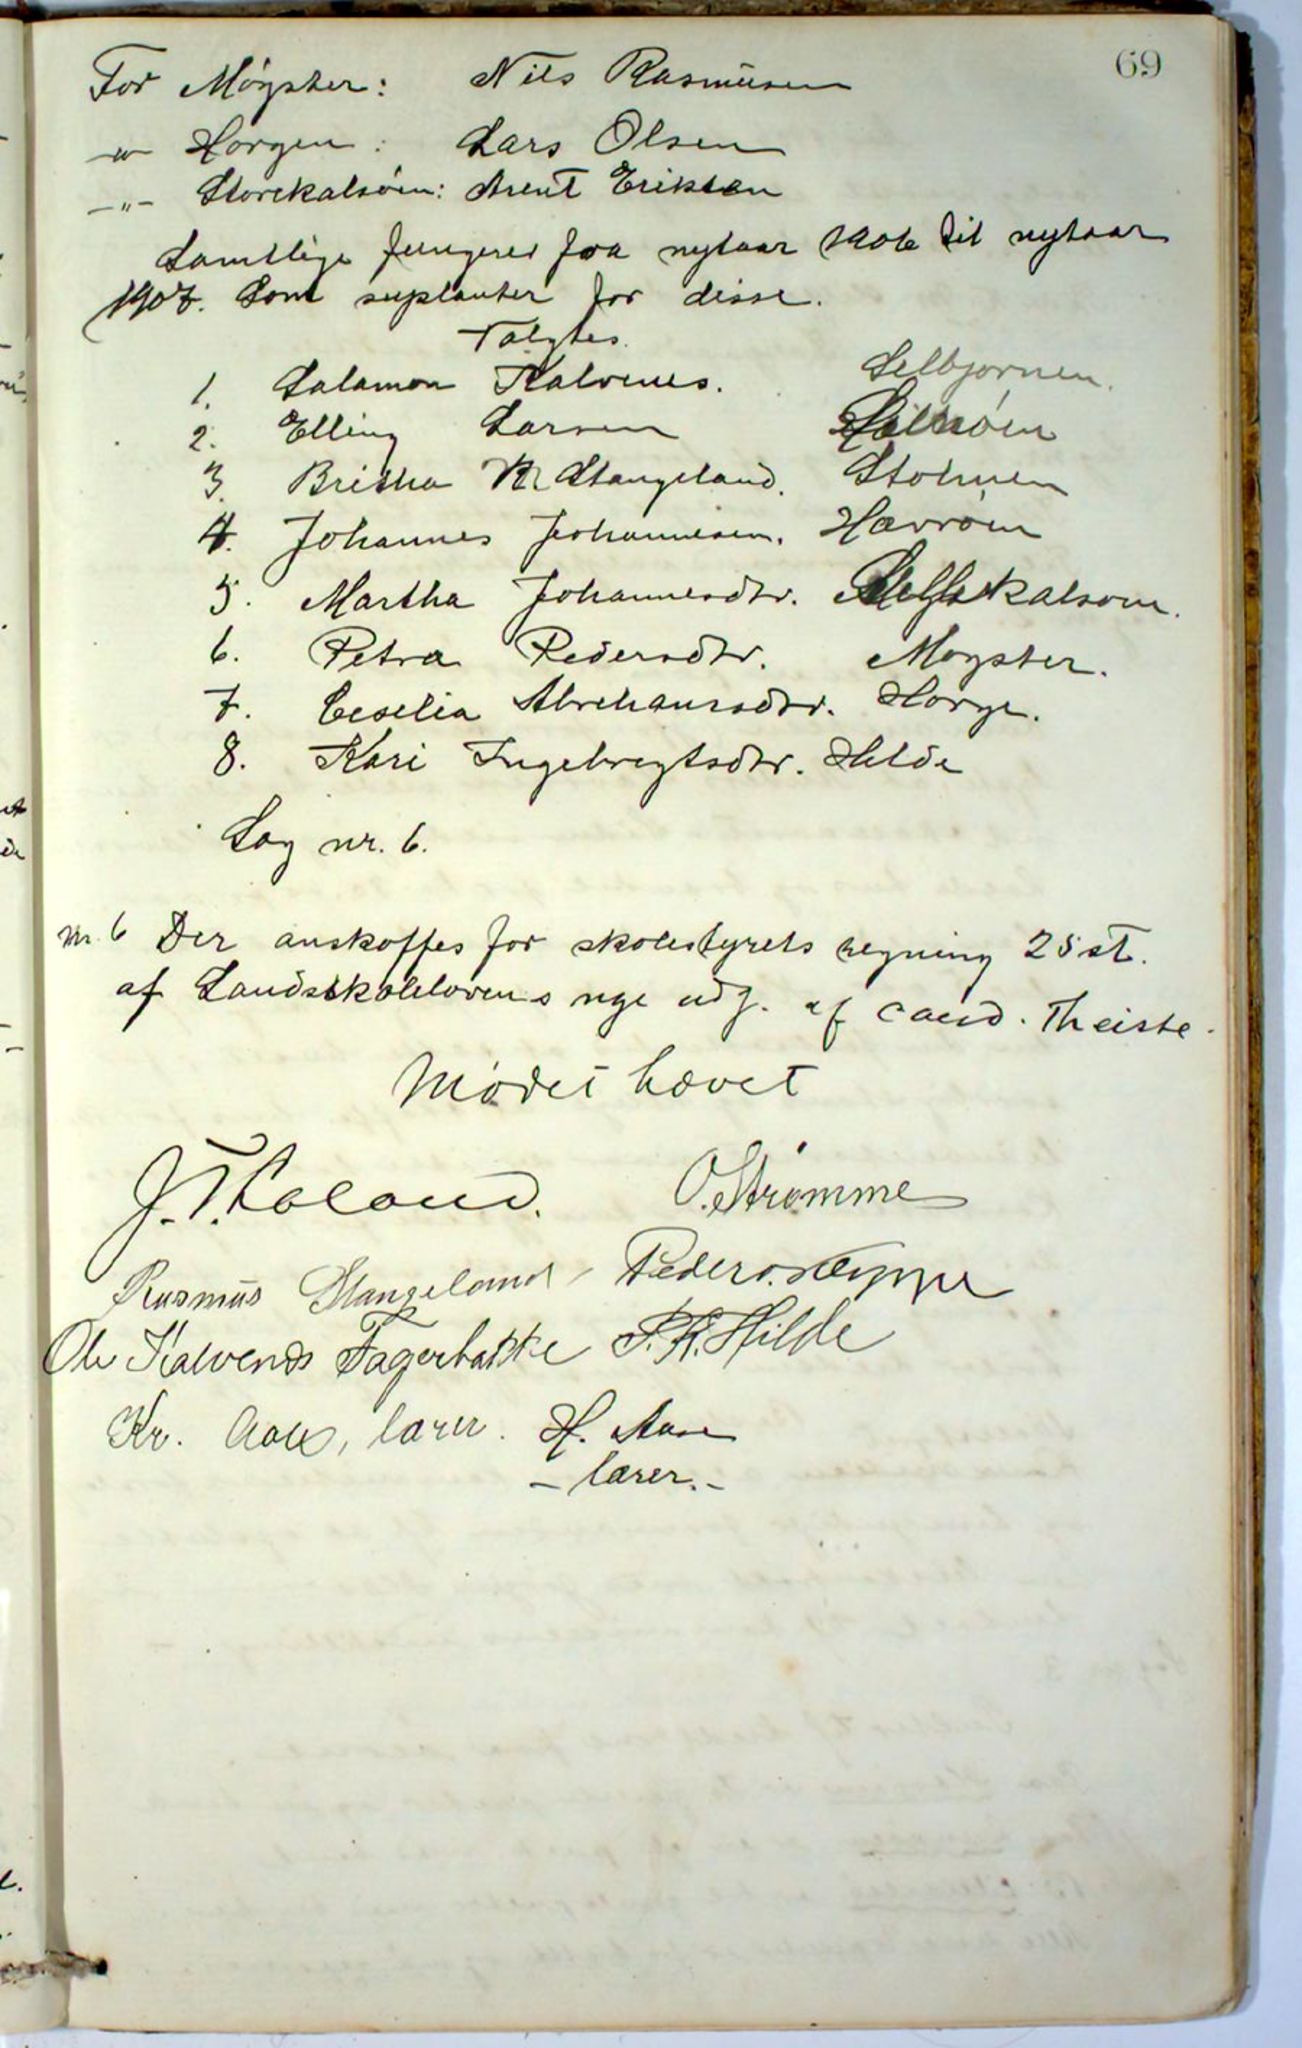 69
For Møgster: Nils Rasmusen
-"- Horgen: Lars Olsen
-"- Storekalsøen: Arent Eriksen
Samtlige fungerer fra nytaar 1906 til nytaar
1907. Som suplanter for disse.
Valgtes.
1. Salamon Kalvenes. Selbjørnen.
2. Elling Larsen
3. Britha R Stangeland. Stolmen
4. Johannes Johannesen. Havrøen
5. Martha Johannesdtr. kalsøen.
6. Petra Pedersdtr. Møgster.
7. Ceselia Abrahamsdtr. Horge.
8. Kari Ingebregtsdtr. Hilde
Sag nr. 6.
Nr. 6 Der anskaffes for skolestyrets regning 25 st.
af Landsskolelovens nye udg. af cand. Theiste.
Mødet hævet
J. T. Kaland. O. Strømme
Rasmus Stangeland Peder O.
Ole Kalvenes Fagerbakke P. K. Hilde
Kr. lærer. H. Aase
- lærer. -